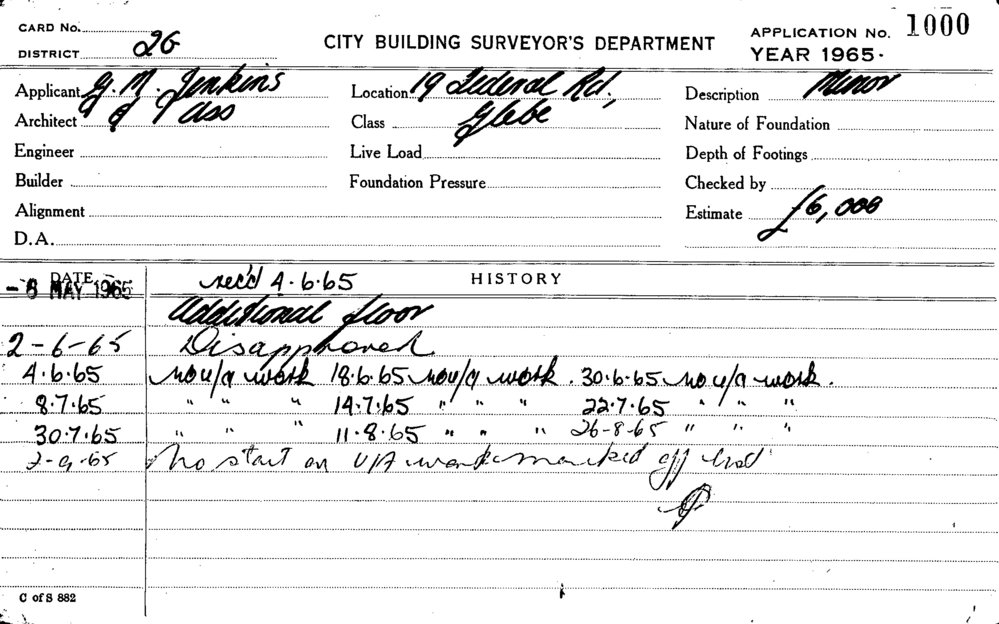 CARD No.
DISTRICT 26
CITY BUILDING SURVEYOR'S DEPARTMENT
APPLICATION No. 1000
YEAR 1965.
Applicant G. M. Jenkins
Location 19 Federal Rd,
Description Minor
Architect & Ass
Class Glebe
Nature of Foundation
Engineer
Live Load
Depth of Footings
Builder
Foundation Pressure
Checked by
Alignment
Estimate £6,000
D.A.
DATE
HISTORY
MAY 1965 rec'd 4.6.65
Additional floor
2-6-65 Disapproved.
4.6.65 no u/a work 18.6.65 no u/a work. 30.6.65 no u/a work.
8.7.65 " " " 14.7.65 " " " 22.7.65 " " "
30.7.65 " " " 11.8.65 " " " 26-8-65 " " "
2-9-65 No start on U/A work marked off
C of S 882